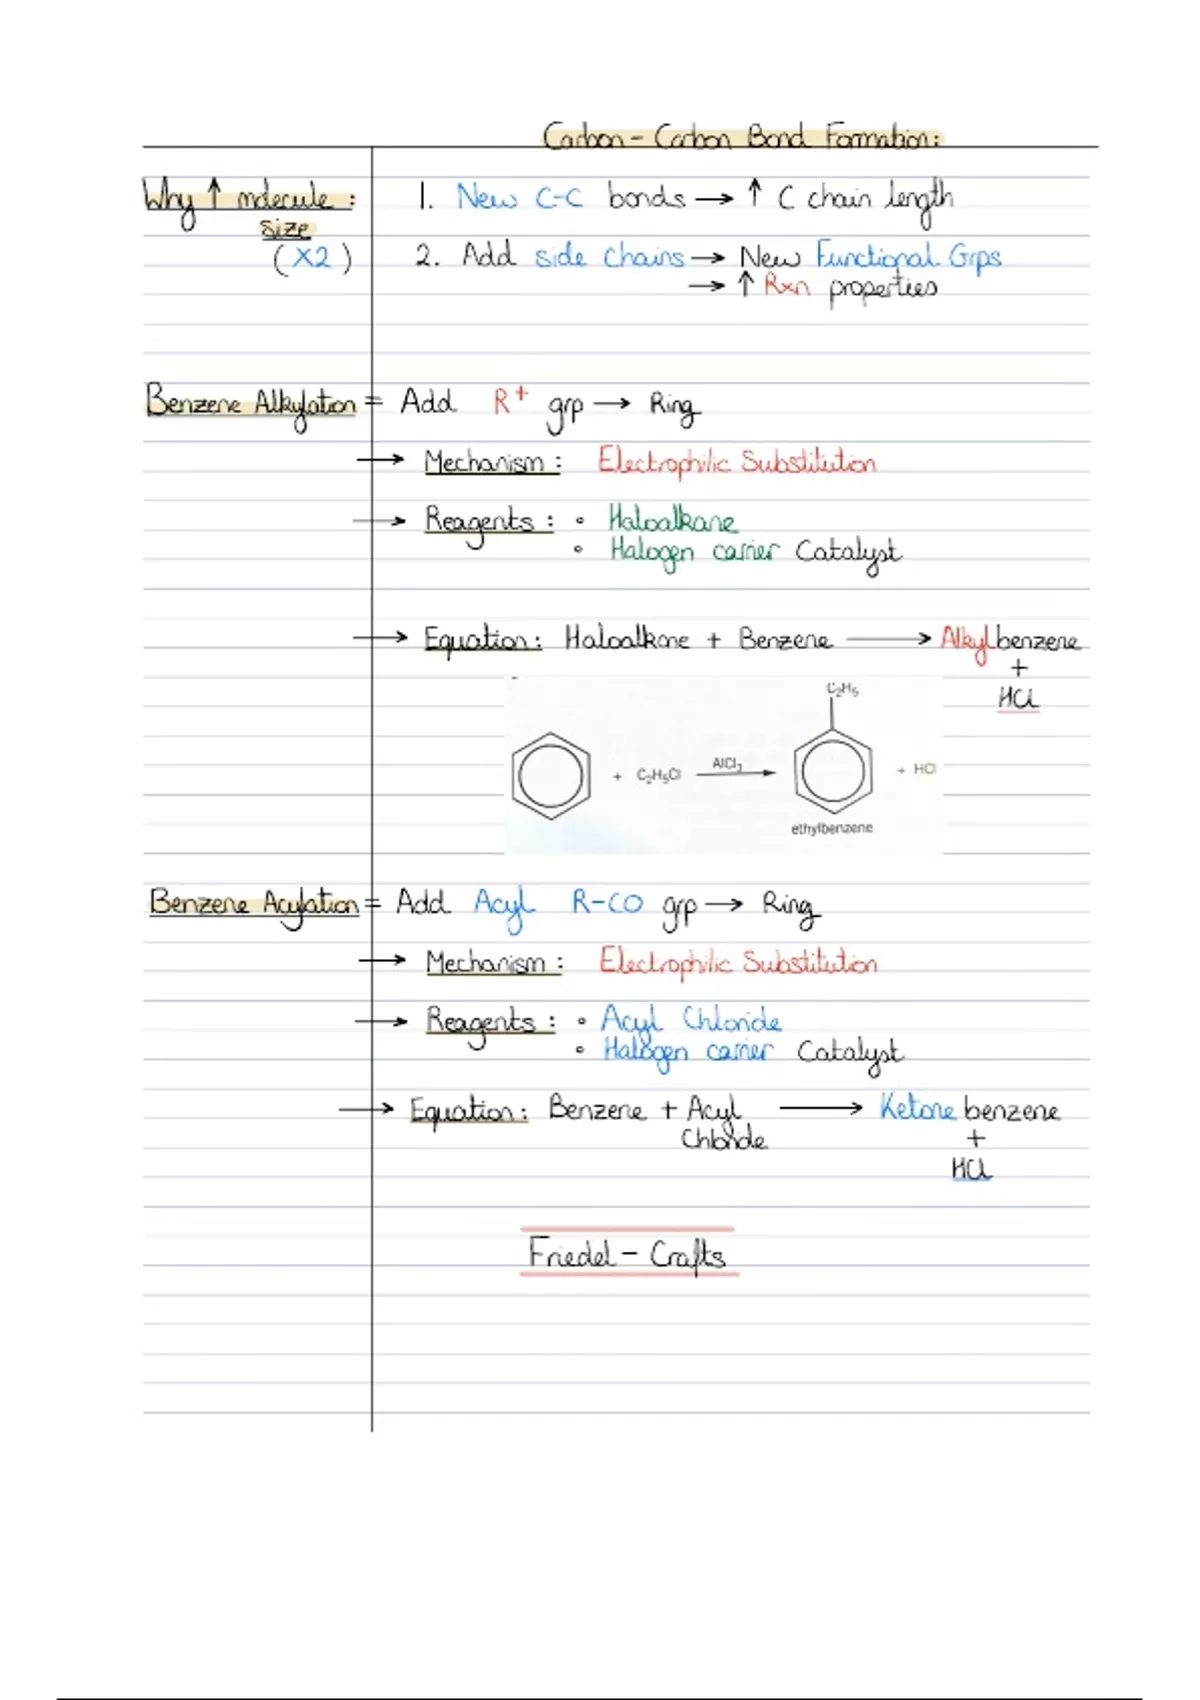 Carbon - Carbon Bond Formation:
Why ↑ molecule :
size
(X2)
1. New C-C bonds → ↑ C chain length
2. Add side chains → New Functional Grps
→ ↑ Rxn properties
Benzene Alkylation = Add R⁺ grp → Ring
→ Mechanism : Electrophilic Substitution
→ Reagents : • Haloalkane
• Halogen carrier Catalyst
→ Equation : Haloalkane + Benzene → Alkylbenzene
+
HCl
C₂H₅
+ C₂H₅Cl AlCl₃ → + HCl
ethylbenzene
Benzene Acylation = Add Acyl R-CO grp → Ring
→ Mechanism : Electrophilic Substitution
→ Reagents : • Acyl Chloride
• Halogen carrier Catalyst
→ Equation : Benzene + Acyl → Ketone benzene
Chloride +
HCl
Friedel - Crafts